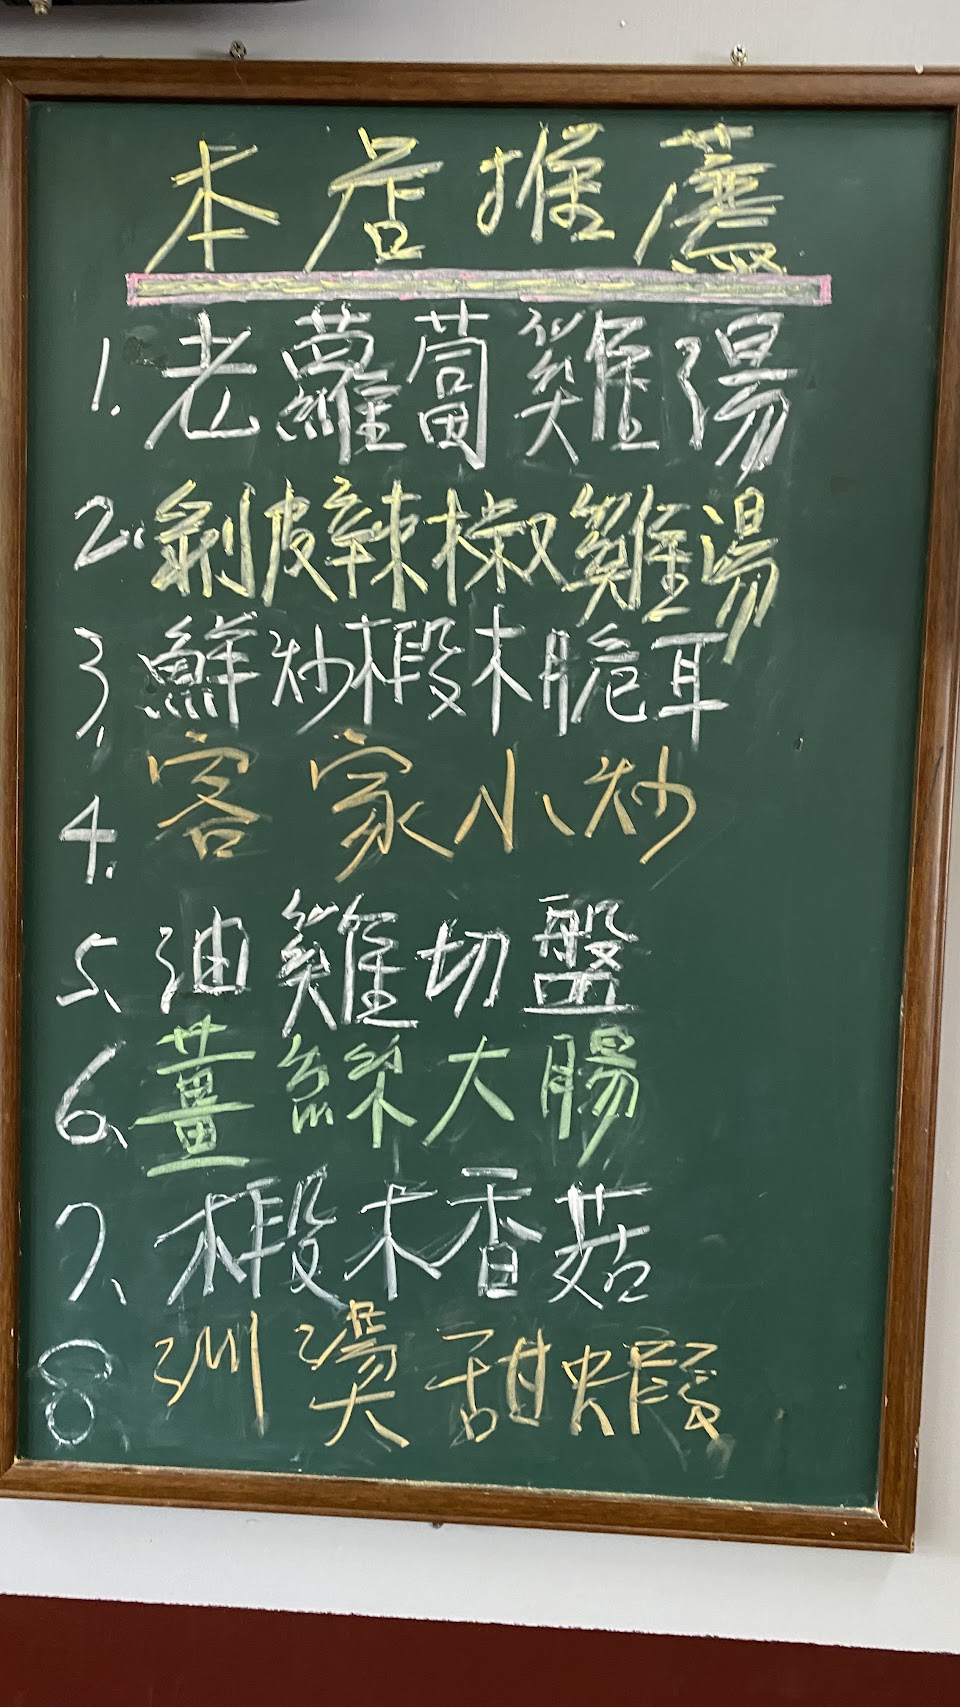 本店推薦
1. 老蘿蔔雞湯
2. 剝皮辣椒雞湯
3. 鮮炒椴木脆耳
4. 客家小炒
5. 油雞切盤
6. 薑絲大腸
7. 椴木香菇
8 川燙甜蝦